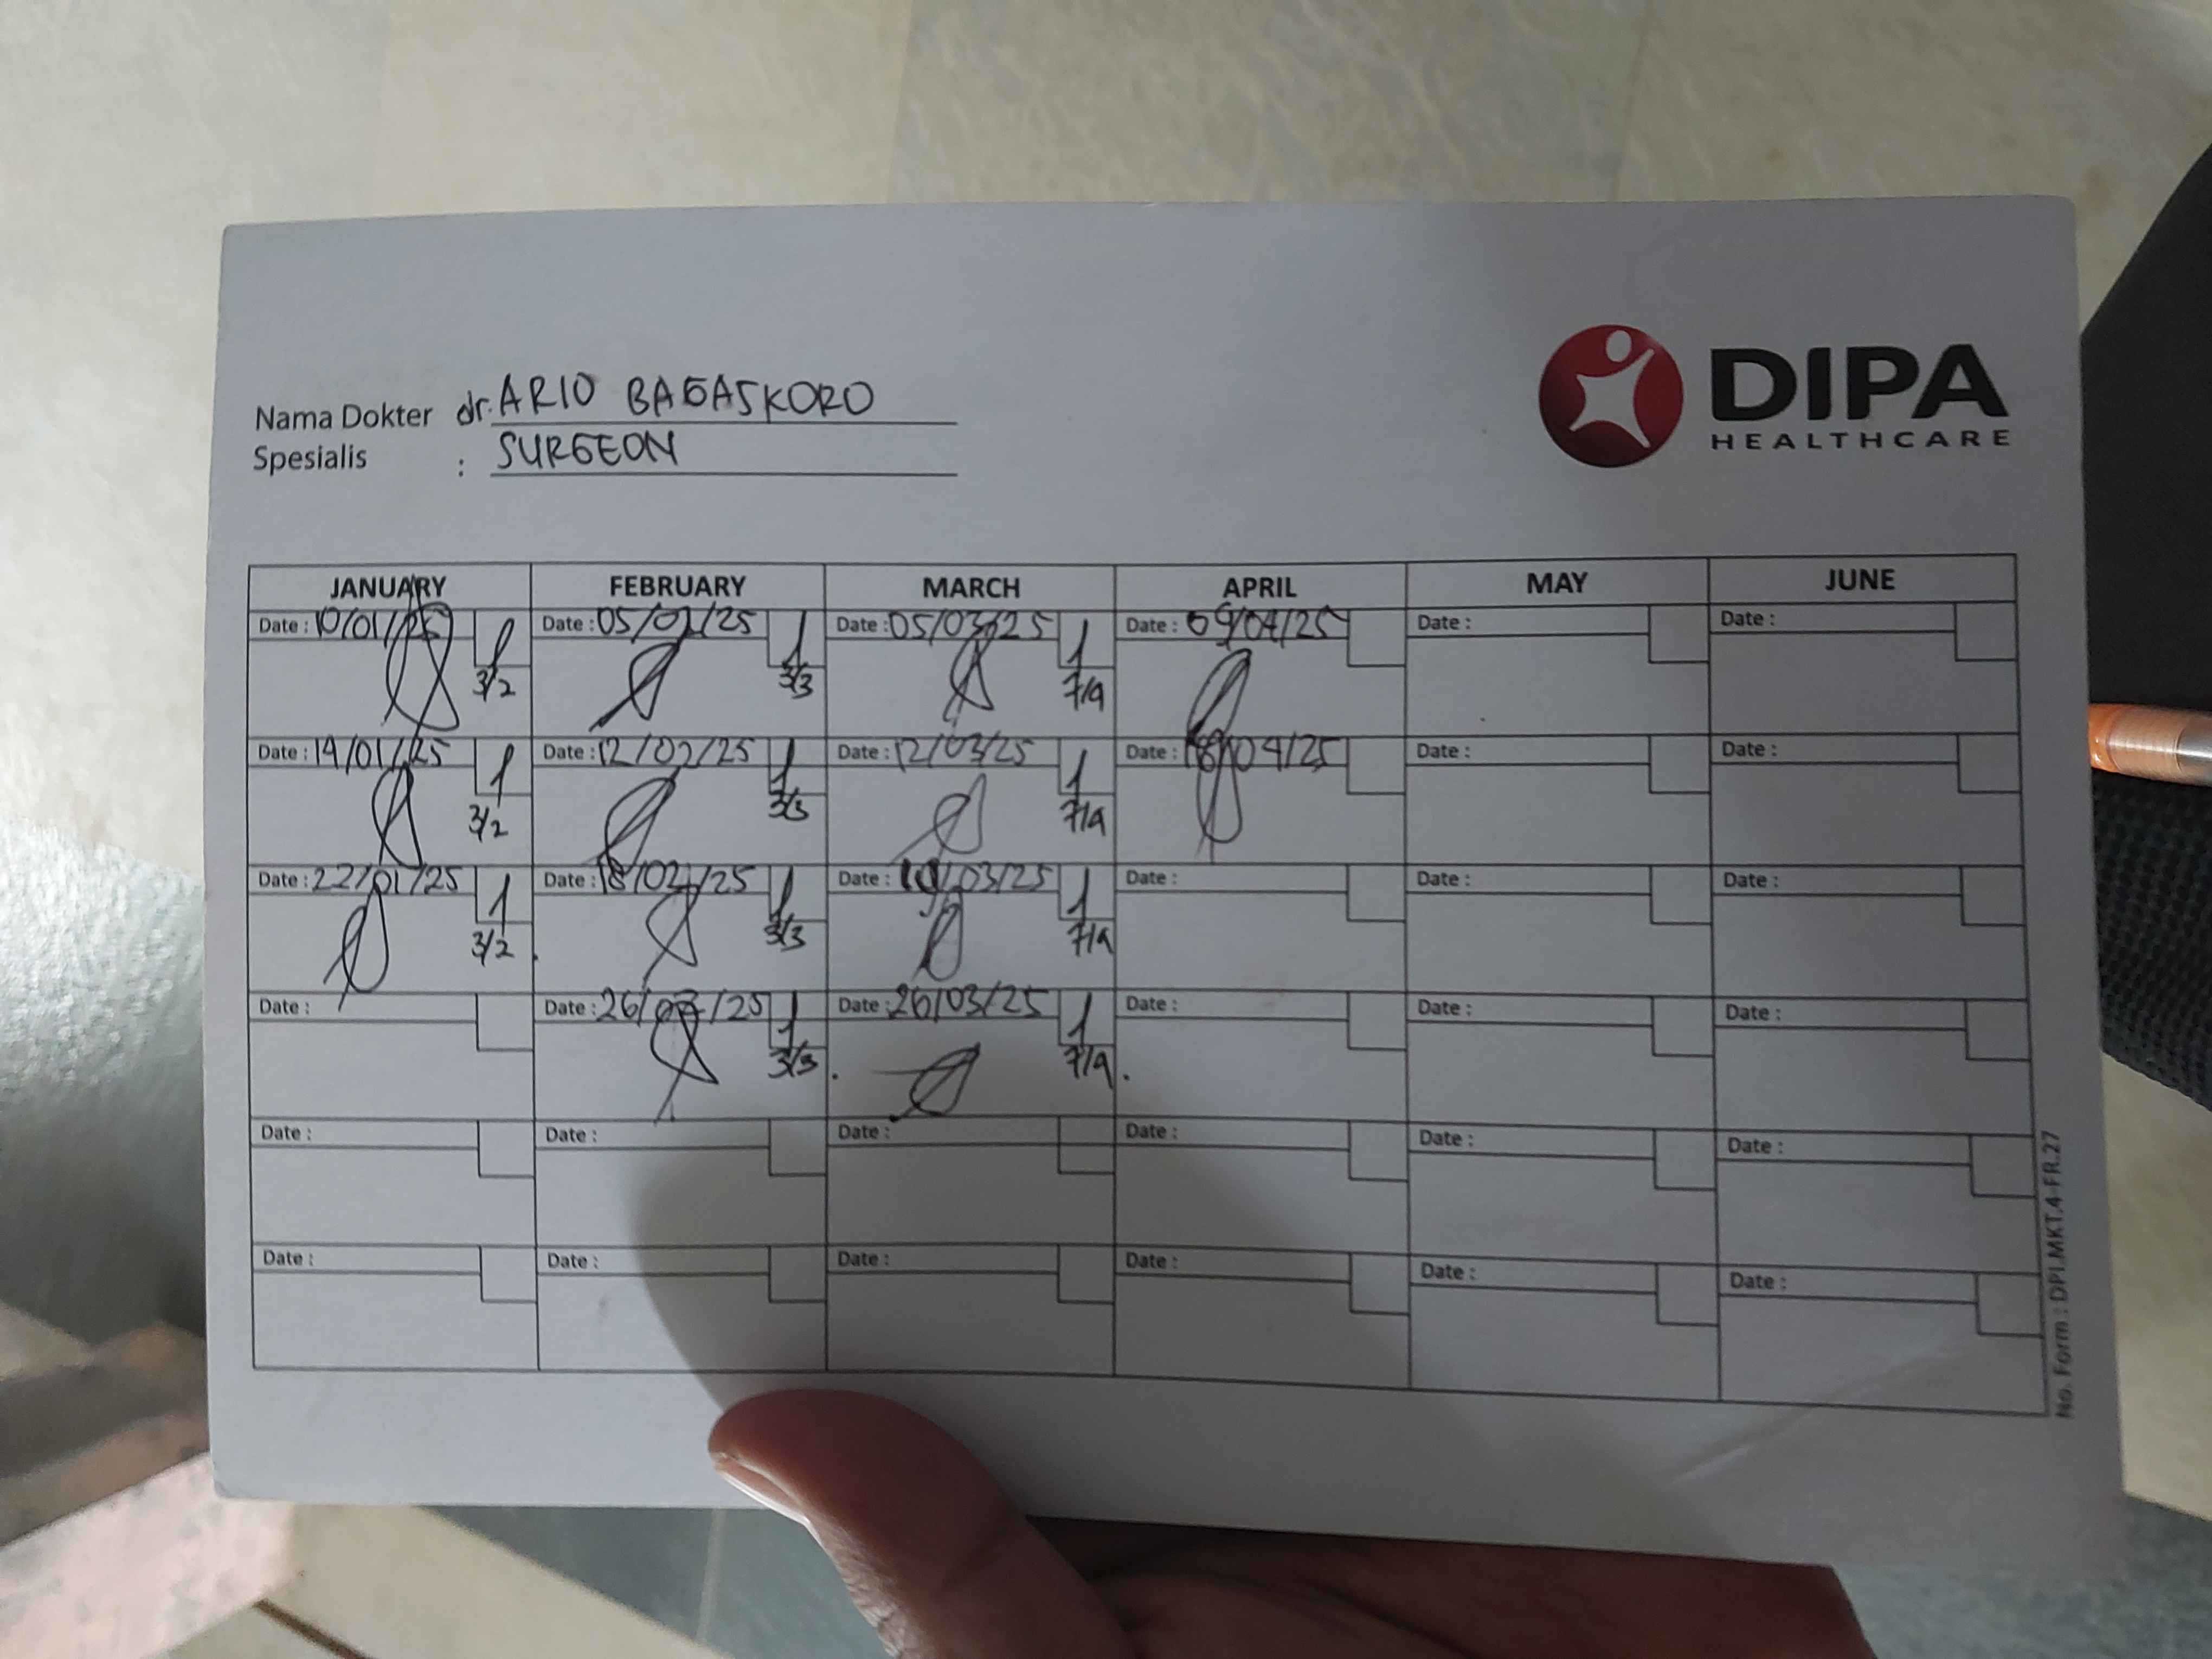 DIPA
HEALTHCARE
Nama Dokter dr. ARIO BAGASKORO
Spesialis : SURGEON
JANUARY FEBRUARY MARCH APRIL MAY JUNE
Date : 10/01/25 Date : 05/02/25 1 Date : 05/03/25 1 Date : 09/04/25 Date : Date :
3/2 3/3 7/4
Date : 14/01/25 1 Date : 12/02/25 1 Date : 12/03/25 1 Date : 18/04/25 Date : Date :
3/2 3/3 7/4
Date : 22/01/25 1 Date : 18/02/25 1 Date : 19/03/25 1 Date : Date : Date :
3/2 3/3 7/4
Date : Date : 26/02/25 1 Date : 26/03/25 1 Date : Date : Date :
3/3 7/4
Date : Date : Date : Date : Date : Date :
Date : Date : Date : Date : Date : Date :
No. Form : DPI.MKT.4-FR.27